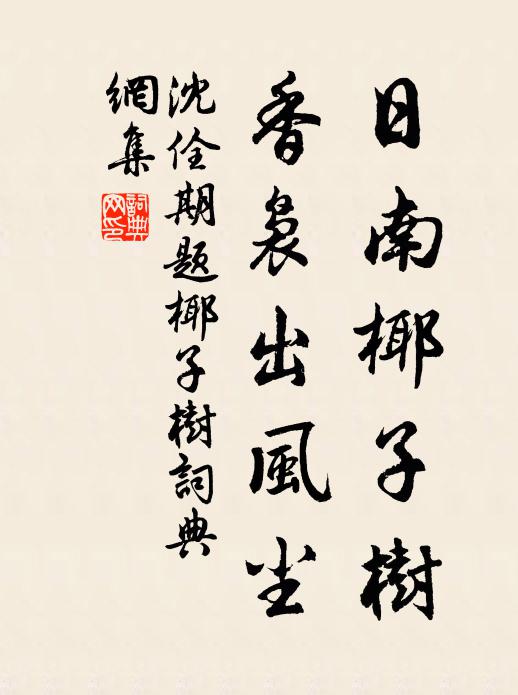 日南椰子樹
香裊出風尘
沈佺期题椰子樹詞典
網集
詞典
网印